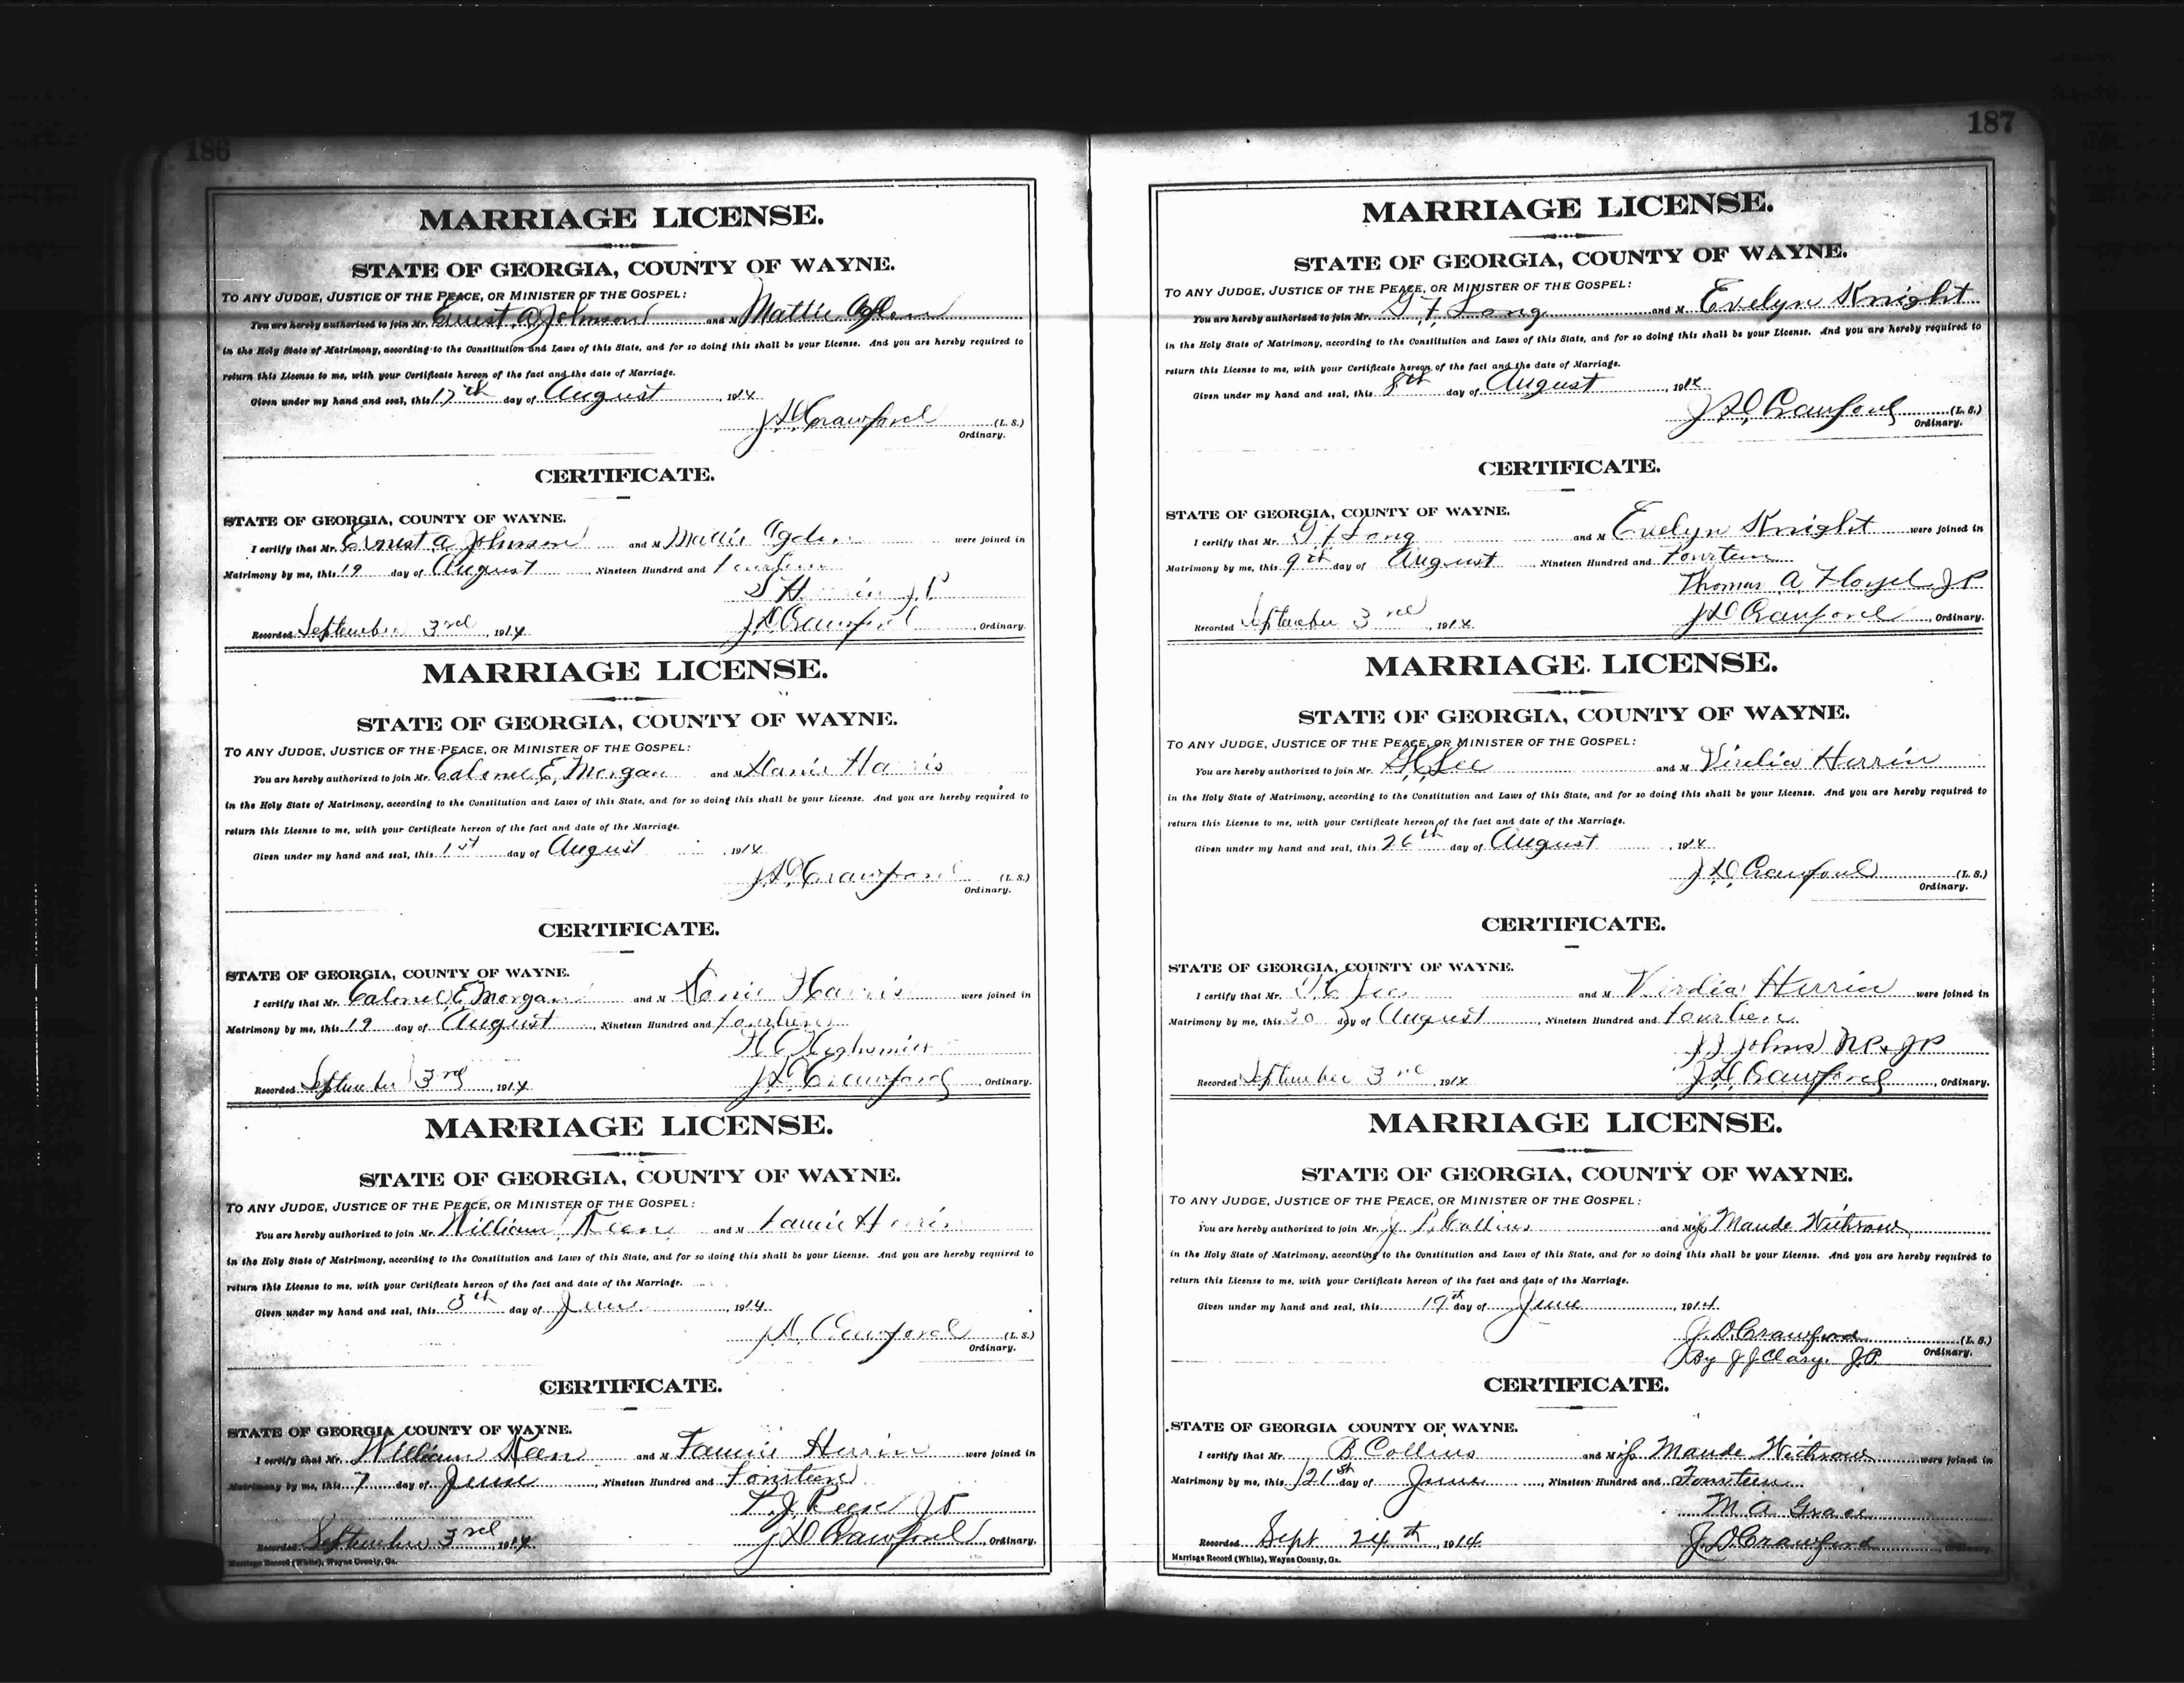 186
MARRIAGE LICENSE.
STATE OF GEORGIA, COUNTY OF WAYNE.
TO ANY JUDGE, JUSTICE OF THE PEACE, OR MINISTER OF THE GOSPEL:
You are hereby authorized to join Mr. Ernest A Johnson and M Mattie Ogden
in the Holy State of Matrimony, according to the Constitution and Laws of this State, and for so doing this shall be your License. And you are hereby required to
return this License to me, with your Certificate hereon of the fact and the date of Marriage.
Given under my hand and seal, this 17th day of August, 1914
J D Crawford (L. S.)
Ordinary.
CERTIFICATE.
STATE OF GEORGIA, COUNTY OF WAYNE.
I certify that Mr. Ernest A Johnson and M Mattie Ogden were joined in
Matrimony by me, this 19 day of August, Nineteen Hundred and Fourteen
J.P
Recorded September 3rd, 1914 J D Crawford, Ordinary.
MARRIAGE LICENSE.
STATE OF GEORGIA, COUNTY OF WAYNE.
TO ANY JUDGE, JUSTICE OF THE PEACE, OR MINISTER OF THE GOSPEL:
You are hereby authorized to join Mr. Colonel E, Morgan and M Harris
in the Holy State of Matrimony, according to the Constitution and Laws of this State, and for so doing this shall be your License. And you are hereby required to
return this License to me, with your Certificate hereon of the fact and date of the Marriage.
Given under my hand and seal, this 1st day of August, 1914
J D Crawford (L. S.)
Ordinary.
CERTIFICATE.
STATE OF GEORGIA, COUNTY OF WAYNE.
I certify that Mr. Colonel E Morgan and M Harris were joined in
Matrimony by me, this 19 day of August, Nineteen Hundred and fourteen
Recorded September 3rd, 1914 J D Crawford, Ordinary.
MARRIAGE LICENSE.
STATE OF GEORGIA, COUNTY OF WAYNE.
TO ANY JUDGE, JUSTICE OF THE PEACE, OR MINISTER OF THE GOSPEL:
You are hereby authorized to join Mr. William Keen and M Fannie Herrin
in the Holy State of Matrimony, according to the Constitution and Laws of this State, and for so doing this shall be your License. And you are hereby required to
return this License to me, with your Certificate hereon of the fact and date of the Marriage.
Given under my hand and seal, this day of June, 1914.
J D Crawford (L. S.)
Ordinary.
CERTIFICATE.
STATE OF GEORGIA COUNTY OF WAYNE.
I certify that Mr. William Keen and M Fannie Herrin were joined in
Matrimony by me, this 7 day of June, Nineteen Hundred and Fourteen
J P
Recorded September 3rd, 1914 J D Crawford, Ordinary.
Marriage Record (White), Wayne County, Ga.
187
MARRIAGE LICENSE.
STATE OF GEORGIA, COUNTY OF WAYNE.
TO ANY JUDGE, JUSTICE OF THE PEACE, OR MINISTER OF THE GOSPEL:
You are hereby authorized to join Mr. G F Long and M Evelyn Knight
in the Holy State of Matrimony, according to the Constitution and Laws of this State, and for so doing this shall be your License. And you are hereby required to
return this License to me, with your Certificate hereon of the fact and the date of Marriage.
Given under my hand and seal, this 8th day of August, 1914
J D Crawford (L. S.)
Ordinary.
CERTIFICATE.
STATE OF GEORGIA, COUNTY OF WAYNE.
I certify that Mr. G F Long and M Evelyn Knight were joined in
Matrimony by me, this 9th day of August, Nineteen Hundred and Fourteen
Thomas A Floyd J P
Recorded September 3rd, 1914 J D Crawford, Ordinary.
MARRIAGE LICENSE.
STATE OF GEORGIA, COUNTY OF WAYNE.
TO ANY JUDGE, JUSTICE OF THE PEACE, OR MINISTER OF THE GOSPEL:
You are hereby authorized to join Mr. Lee and M Herrin
in the Holy State of Matrimony, according to the Constitution and Laws of this State, and for so doing this shall be your License. And you are hereby required to
return this License to me, with your Certificate hereon of the fact and date of the Marriage.
Given under my hand and seal, this 26th day of August, 1914
J D Crawford (L. S.)
Ordinary.
CERTIFICATE.
STATE OF GEORGIA, COUNTY OF WAYNE.
I certify that Mr. Lee and M Virdia Herrin were joined in
Matrimony by me, this 30 day of August, Nineteen Hundred and fourteen
J J Johns N.P. & J P
Recorded September 3rd, 1914 J D Crawford, Ordinary.
MARRIAGE LICENSE.
STATE OF GEORGIA, COUNTY OF WAYNE.
TO ANY JUDGE, JUSTICE OF THE PEACE, OR MINISTER OF THE GOSPEL:
You are hereby authorized to join Mr. Collins and Miss Maude Withrow
in the Holy State of Matrimony, according to the Constitution and Laws of this State, and for so doing this shall be your License. And you are hereby required to
return this License to me, with your Certificate hereon of the fact and date of the Marriage.
Given under my hand and seal, this 19th day of June, 1914
J. D. Crawford (L. S.)
By J J Clary. J.P. Ordinary.
CERTIFICATE.
STATE OF GEORGIA COUNTY OF WAYNE.
I certify that Mr. B Collins and Miss Maude Withrow were joined in
Matrimony by me, this 21st day of June, Nineteen Hundred and Fourteen
M A Grace
Recorded Sept 24th, 1914 J. D. Crawford, Ordinary.
Marriage Record (White), Wayne County, Ga.